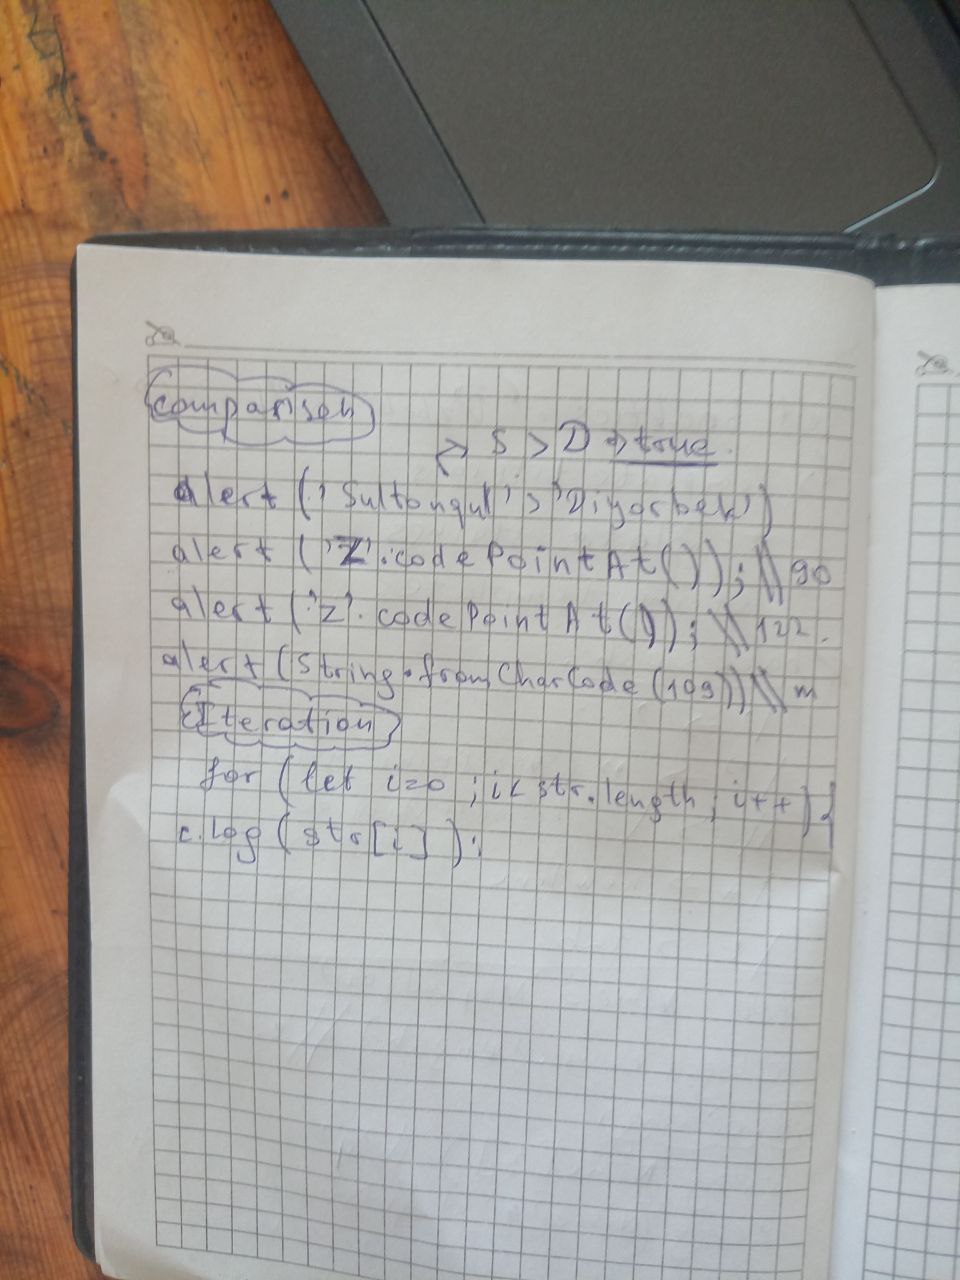 Comparison
S > D => true.
alert ('Sultonqul' > 'Diyorbek')
alert ('Z'.codePointAt()); \\ 90
alert ('z'.codePointAt()); \\ 122.
alert (String.fromCharCode (109)) \\ m
Iteration
for (let i=0 ; i< str.length ; i++) {
c.log (str[i]);